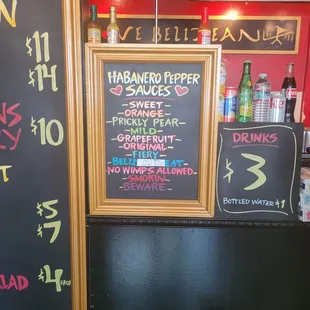 VE BELIZEAN
HABANERO PEPPER
SAUCES
SWEET
ORANGE
PRICKLY PEAR
MILD
GRAPEFRUIT
ORIGINAL
FIERY
BELIZ HEAT
NO WIMPS ALLOWED
SMOKIN
BEWARE
N
$11
$14
NS
RY
$10
$5
$7
LAD
$4 EA
DRINKS
$3
BOTTLED WATER $1